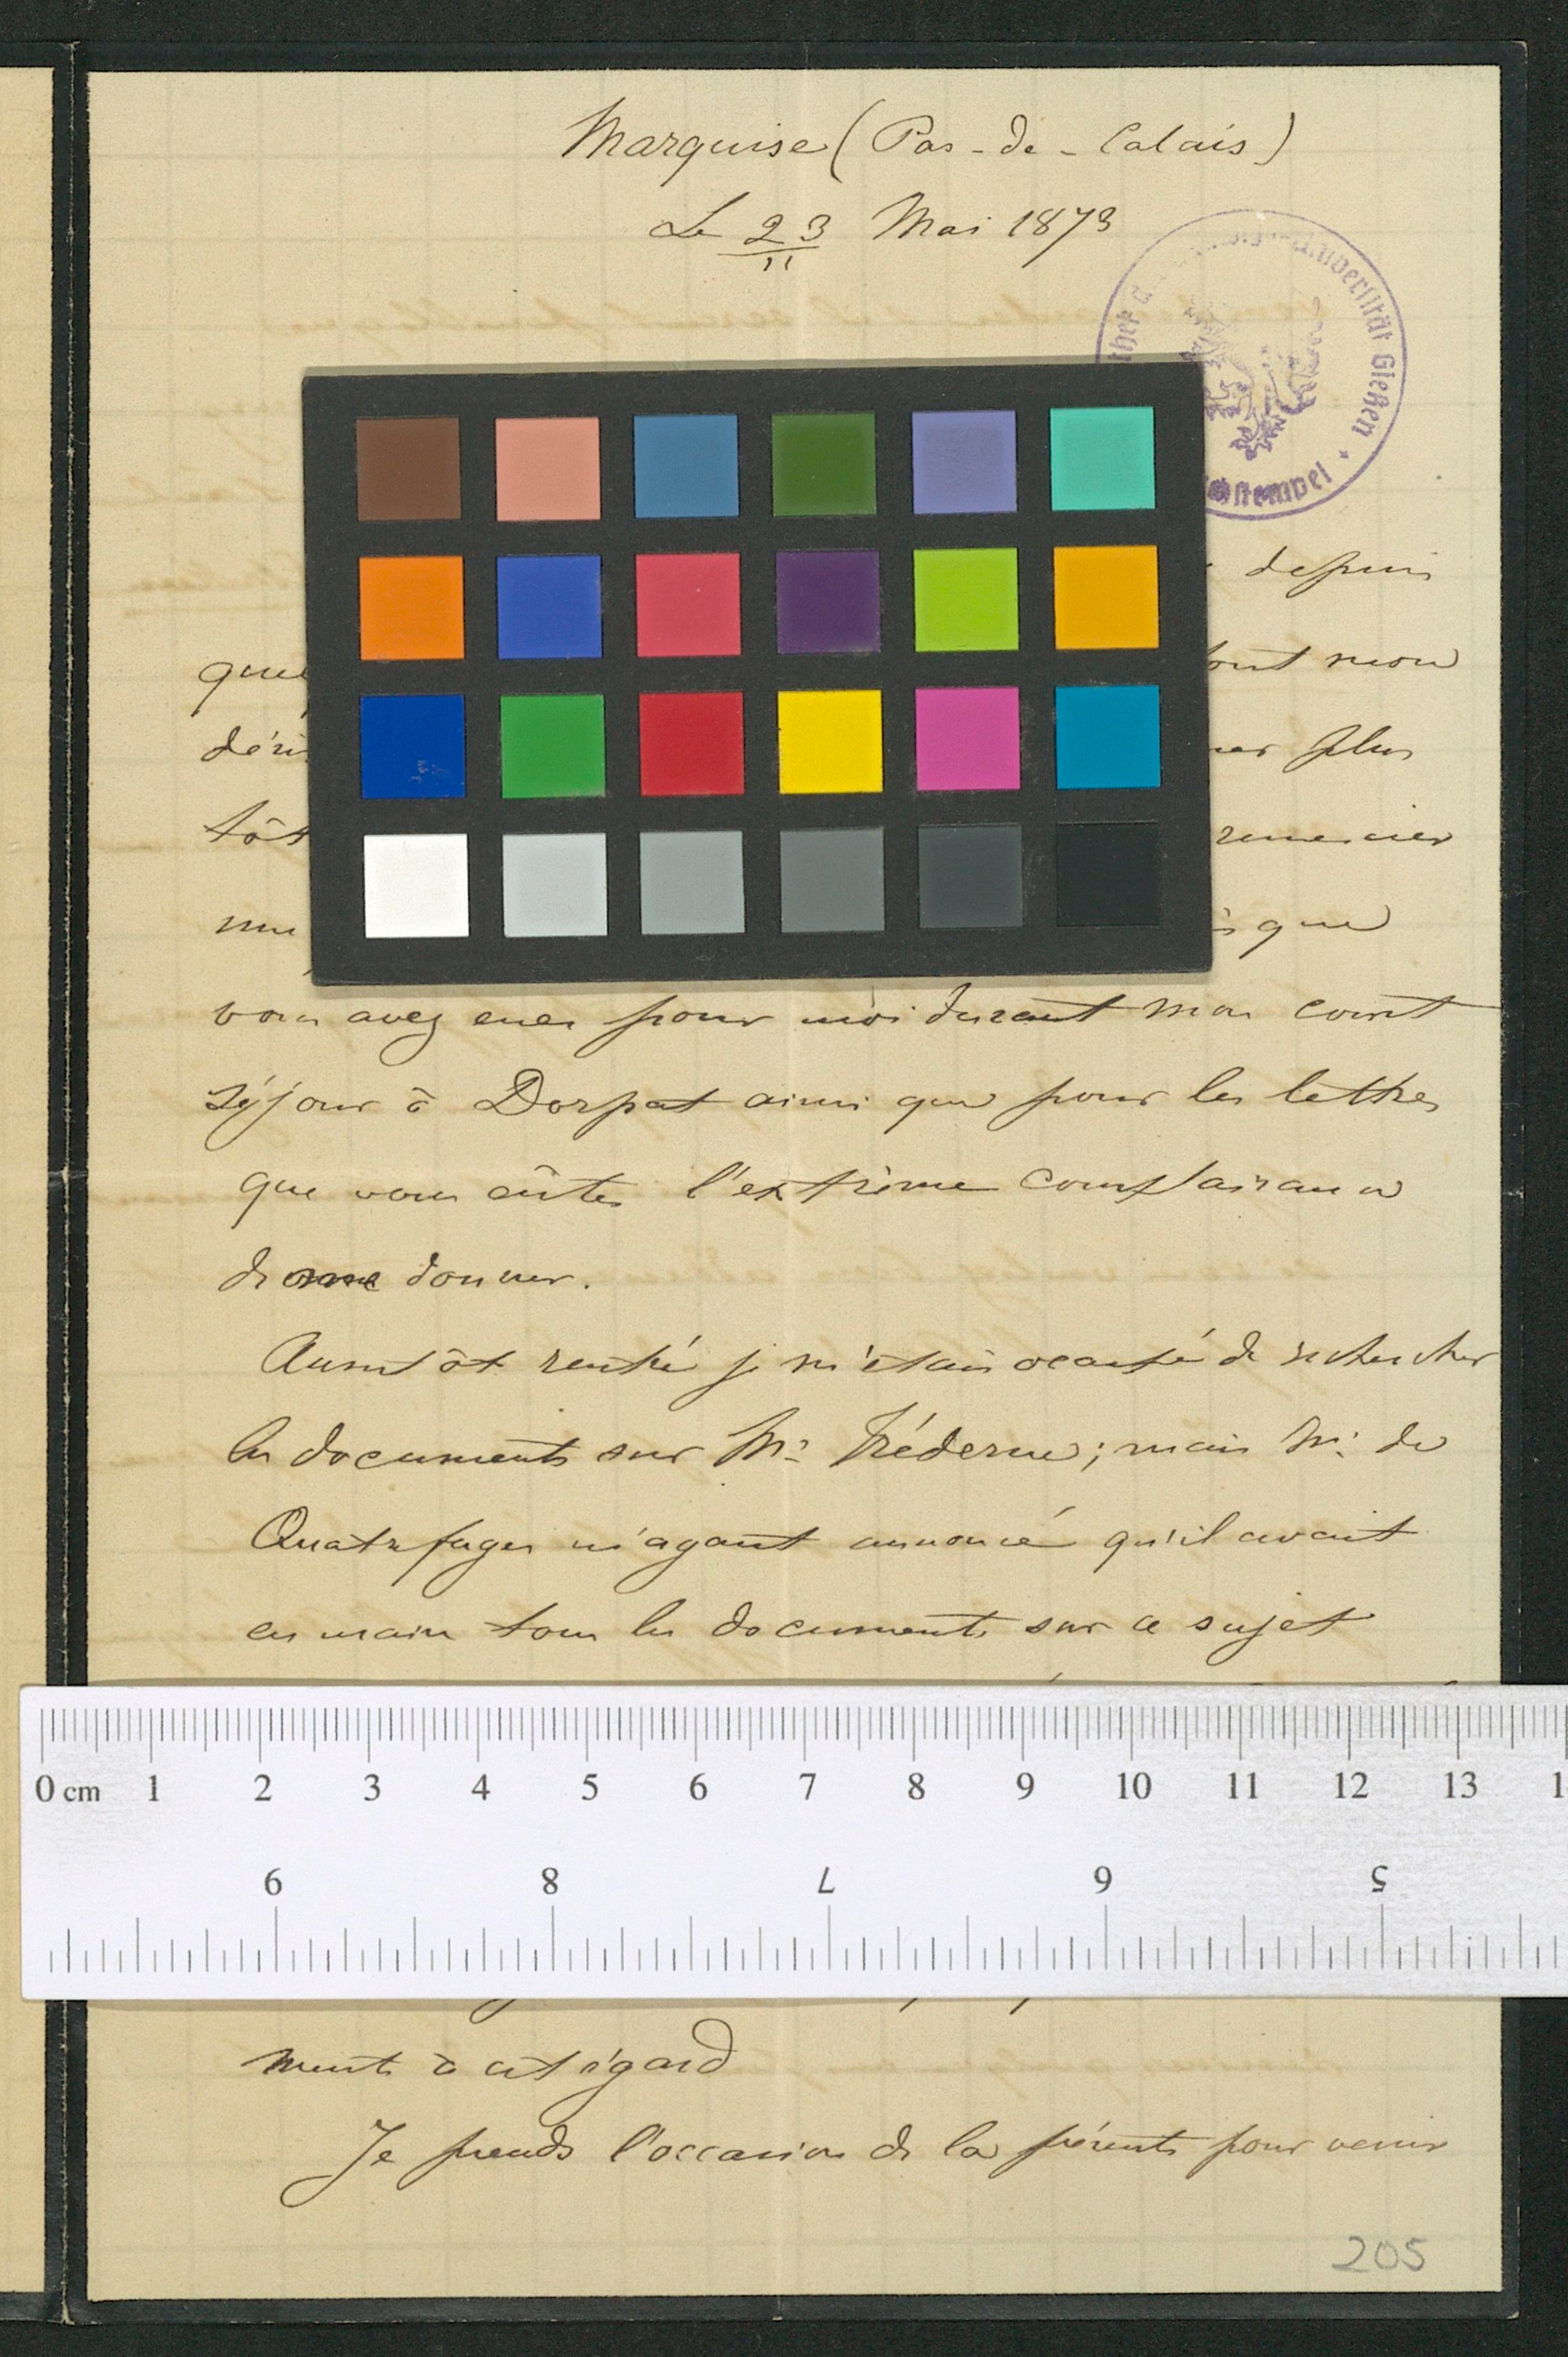 Marquise (Pas-de-Calais)
Le 23 Mai 1873
Universität Gießen
depuis
tout mon
plus
tôt
remercier
que
vous avez eues pour moi durant mon court
séjour à Dorpat ainsi que pour les lettres
que vous eûtes l'extrème complaisance
de me donner.
Aussitôt rentré je m'étais occupé de rechercher
les documents sur Mr. ; mais Mr. de
Quatrefages m'ayant annoncé qu'il avait
en main tous les documents sur ce sujet
0 cm 1 2 3 4 5 6 7 8 9 10 11 12 13 1
9 8 7 6 5
ments à cet égard
Je prends l'occasion de la présente pour venir
205